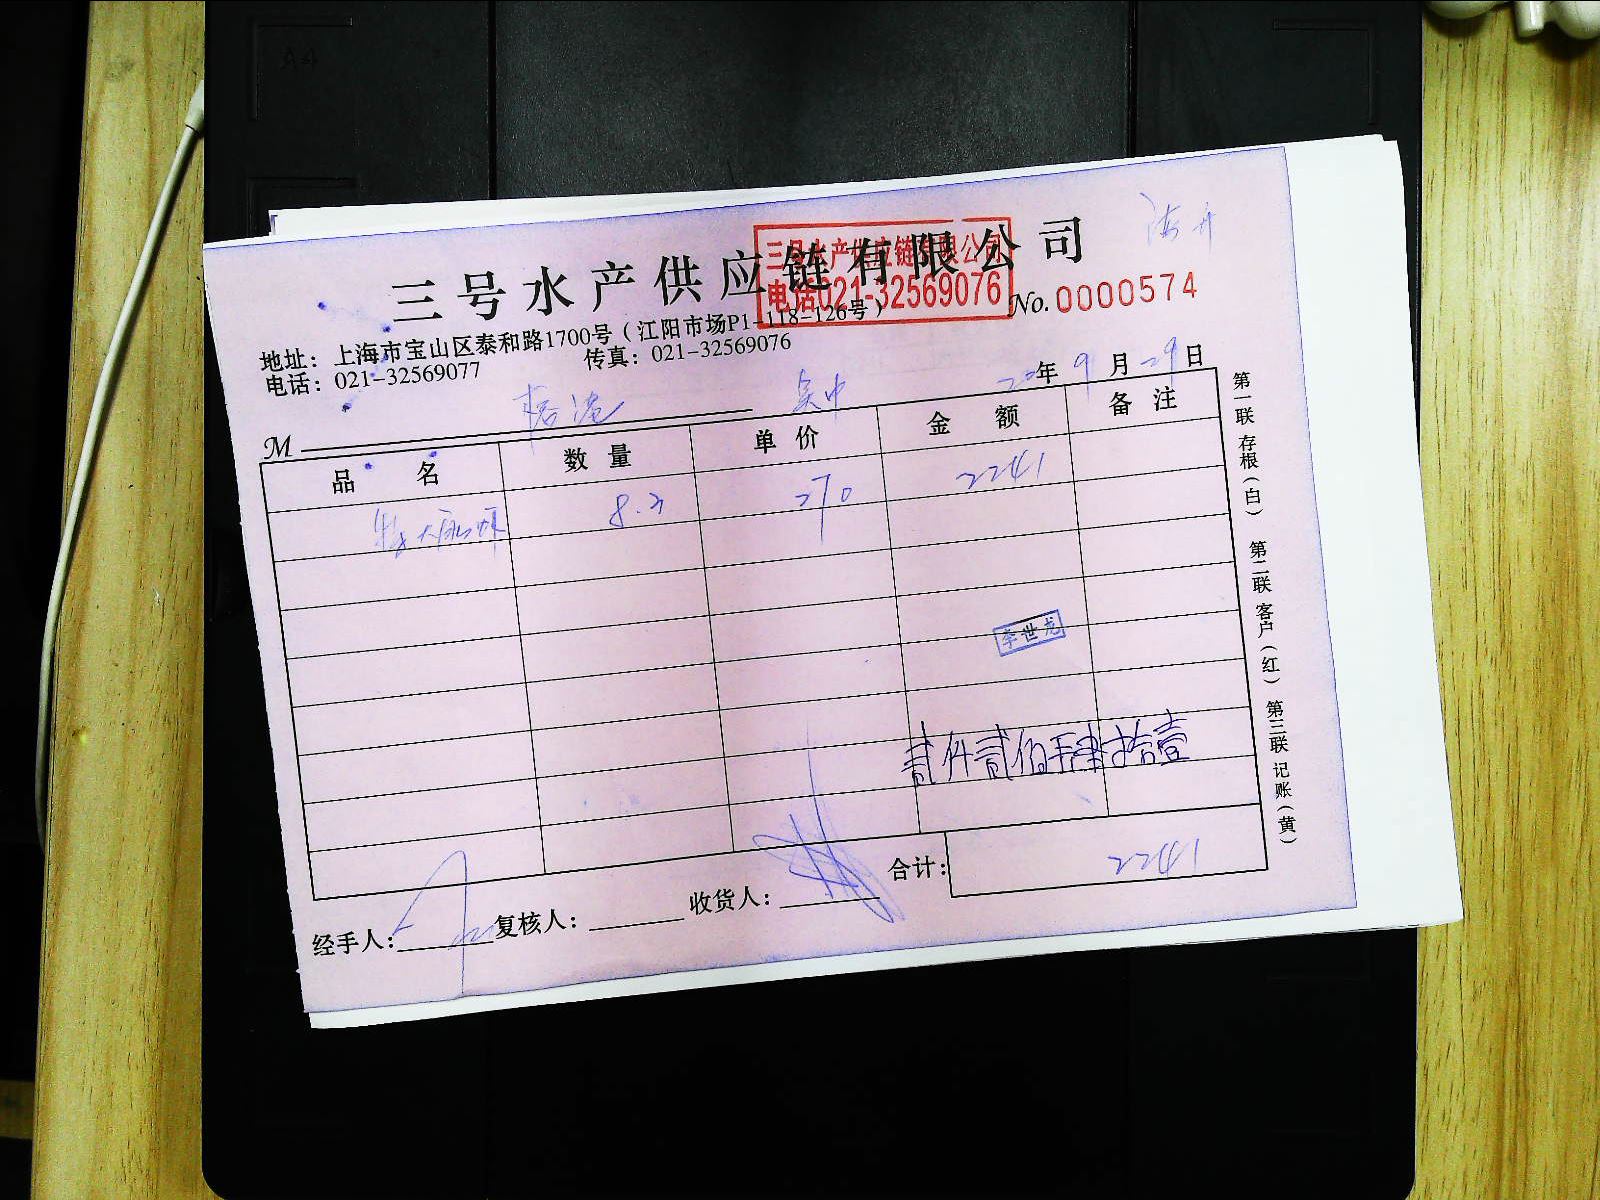 三号水产供应链有限公司
三号水产供应链有限公司
电话021-32569076
No.0000574
地址：上海市宝山区泰和路1700号（江阳市场P1-118-126号）
电话：021-32569077 传真：021-32569076
20年9月29日
M 吴中
品名 数量 单价 金额 备注
特大 8.3 270 2241
李世龙
贰仟贰佰肆拾壹
合计： 2241
经手人： 复核人： 收货人：
第一联 存根（白） 第二联 客户（红） 第三联 记账（黄）